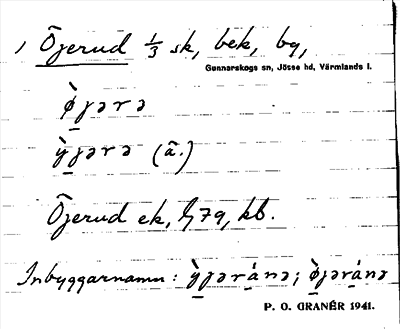 1 Öjerud 1/3 sk, bek, by,
Gunnarskogs sn, Jösse hd, Värmlands l.
ø̣̀jərə
ỵ̀jərə (ä.)
Öjerud ek, G79, kb.
Inbyggarnamn: ỵ̀jəránə; ø̣̀jəránə
P. O. GRANÉR 1941.